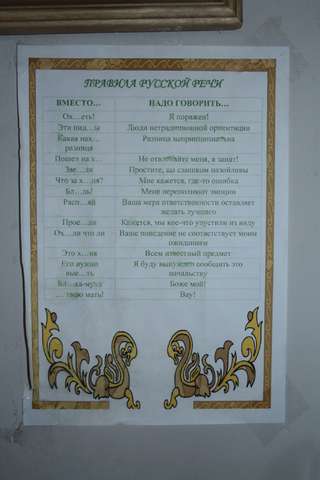 ПРАВИЛА РУССКОЙ РЕЧИ
ВМЕСТО... НАДО ГОВОРИТЬ...
Ох...еть! Я поражен!
Эти пид...ы Люди нетрадиционной ориентации
Какая нах... Разница непринципиальна
разница
Пошел на х... Не отвлекайте меня, я занят!
Зве...ли Простите, вы слишком назойливы
Что за х...ня? Мне кажется, где-то ошибка
Бл...дь! Меня переполняют эмоции
Расп...яй Ваша мера ответственности оставляет
желать лучшего
Прое...ли Кажется, мы кое-что упустили из виду
Ох...ли что ли Ваше поведение не соответствует моим
ожиданиям
Это х...ня Всем известный предмет
Его нужно Я буду вынужден сообщить это
вые...ть начальству
Бл...да-муда Боже мой!
... твою мать! Вау!